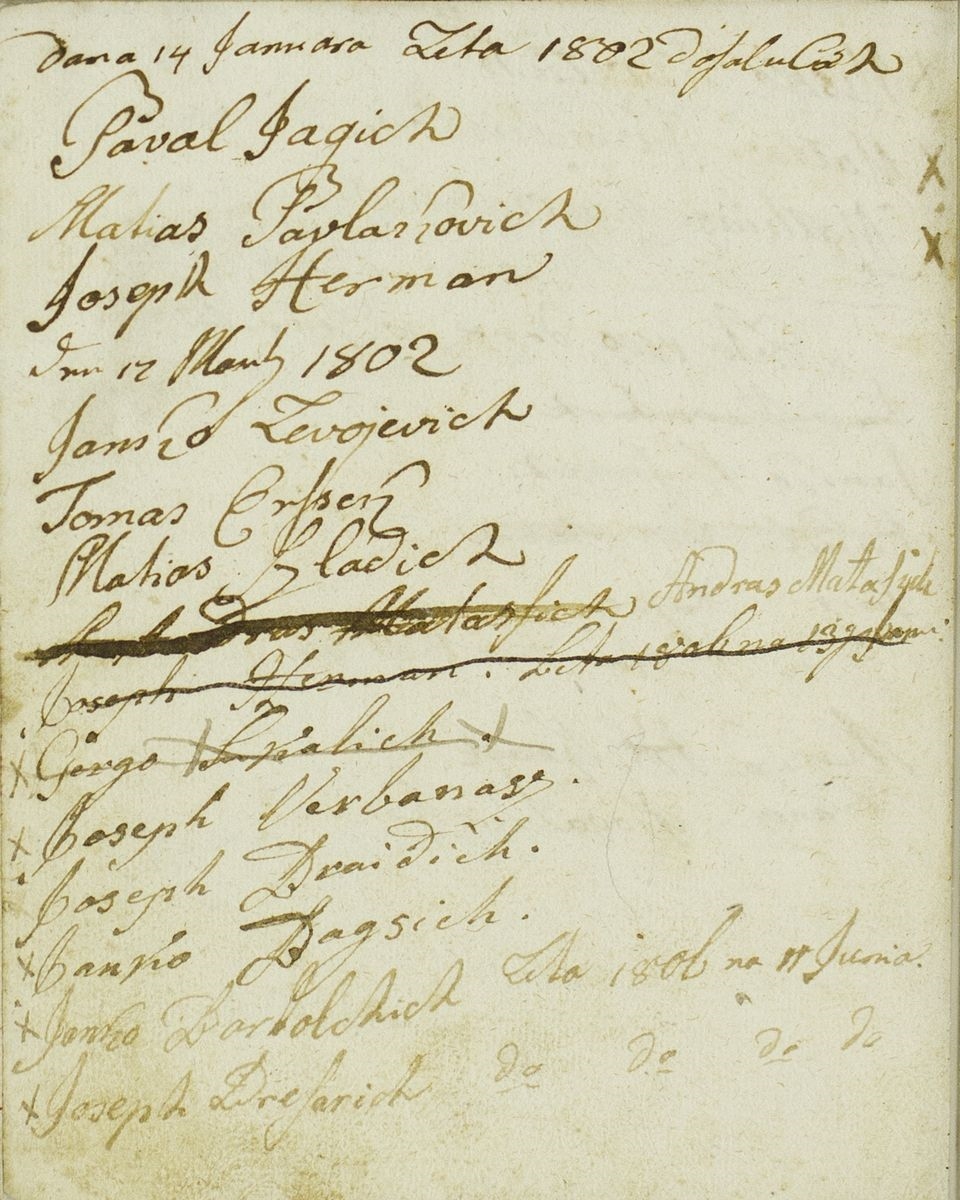 Dana 14 Januara Leta 1802 doſzluſich
Paval Jagich
Matias Pavlakovich
Joseph Herman
den 12 Martz 1802
Janko Zevojevich
Tomas Erſsek
Matias Gladich
Andras Mataſsich Andras Mataſich
Joseph Herman. Leta 1806 na 13
Gergo Kralich.
Joseph Verbanasz.
Joseph Draidich.
Janko Dagsich.
Janko Dartolchich Leta 1806 na 11 Junia.
Joseph Dreſarich do do do do